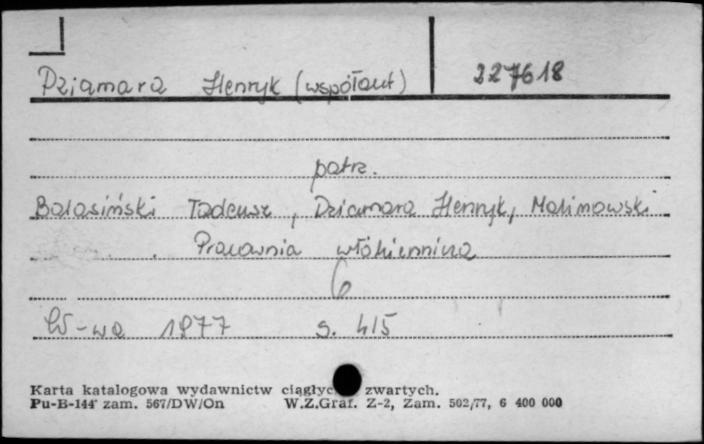 Dziamara Henryk (współaut) 227618
patrz.
Balasiński Tadeusz, Dziamara Henryk, Malinowski
Pracownia włókiennicza
6
W-wa 1977 s. 415
Karta katalogowa wydawnictw ciągłyc zwartych.
Pu-B-144 zam. 567/DW/On W.Z.Graf. Z-2, Zam. 502/77, 6 400 000